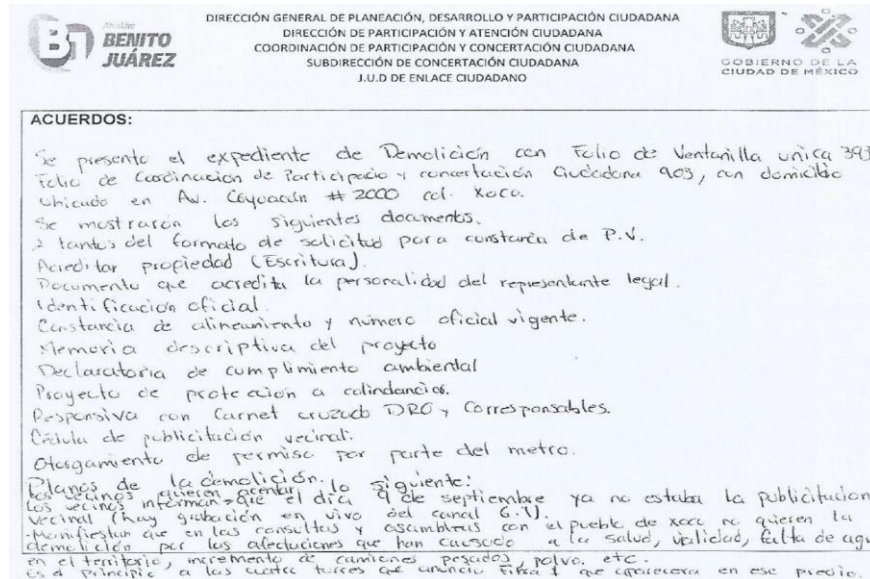 Alcaldía
BENITO
JUÁREZ
DIRECCIÓN GENERAL DE PLANEACIÓN, DESARROLLO Y PARTICIPACIÓN CIUDADANA
DIRECCIÓN DE PARTICIPACIÓN Y ATENCIÓN CIUDADANA
COORDINACIÓN DE PARTICIPACIÓN Y CONCERTACIÓN CIUDADANA
SUBDIRECCIÓN DE CONCERTACIÓN CIUDADANA
J.U.D DE ENLACE CIUDADANO
GOBIERNO DE LA
CIUDAD DE MÉXICO
ACUERDOS:
Se presento el expediente de Demolición con Folio de Ventanilla unica 393
Folio de Coordinación de Participacio y concertación Ciudadana 903, con domicilio
Ubicado en Av. Coyoacán # 2000 col. Xoco.
Se mostrarón los siguientes documentos.
2 tantos del formato de solicitud para constancia de P.V.
Acreditar propiedad (Escritura).
Documento que acredita la personalidad del representante legal.
Identificación oficial.
Constancia de alineamiento y número oficial vigente.
Memoria descriptiva del proyecto
Declaratoria de cumplimiento ambiental
Proyecto de protección a colindancias.
Responsiva con Carnet cruzado DRO y Corresponsables.
Cédula de publicitación vecinal.
Otorgamiento de permiso por parte del metro.
Planos de la demolición.
los vecinos quieren acentar lo siguiente:
Los vecinos informan que el día 9 de septiembre ya no estaba la publicitacion
vecinal (hay grabación en vivo del canal 6.1).
-Manifiestan que en las consultas y asambleas con el pueblo de xoco no quieren la
demolición por las afectaciones que han causado a la salud, vialidad, falta de agu
en el territorio, incremento de camiones pesados, polvo, etc.
es el principio a las cuatro torres que anuncio Fibra 1 que aparecera en ese predio.